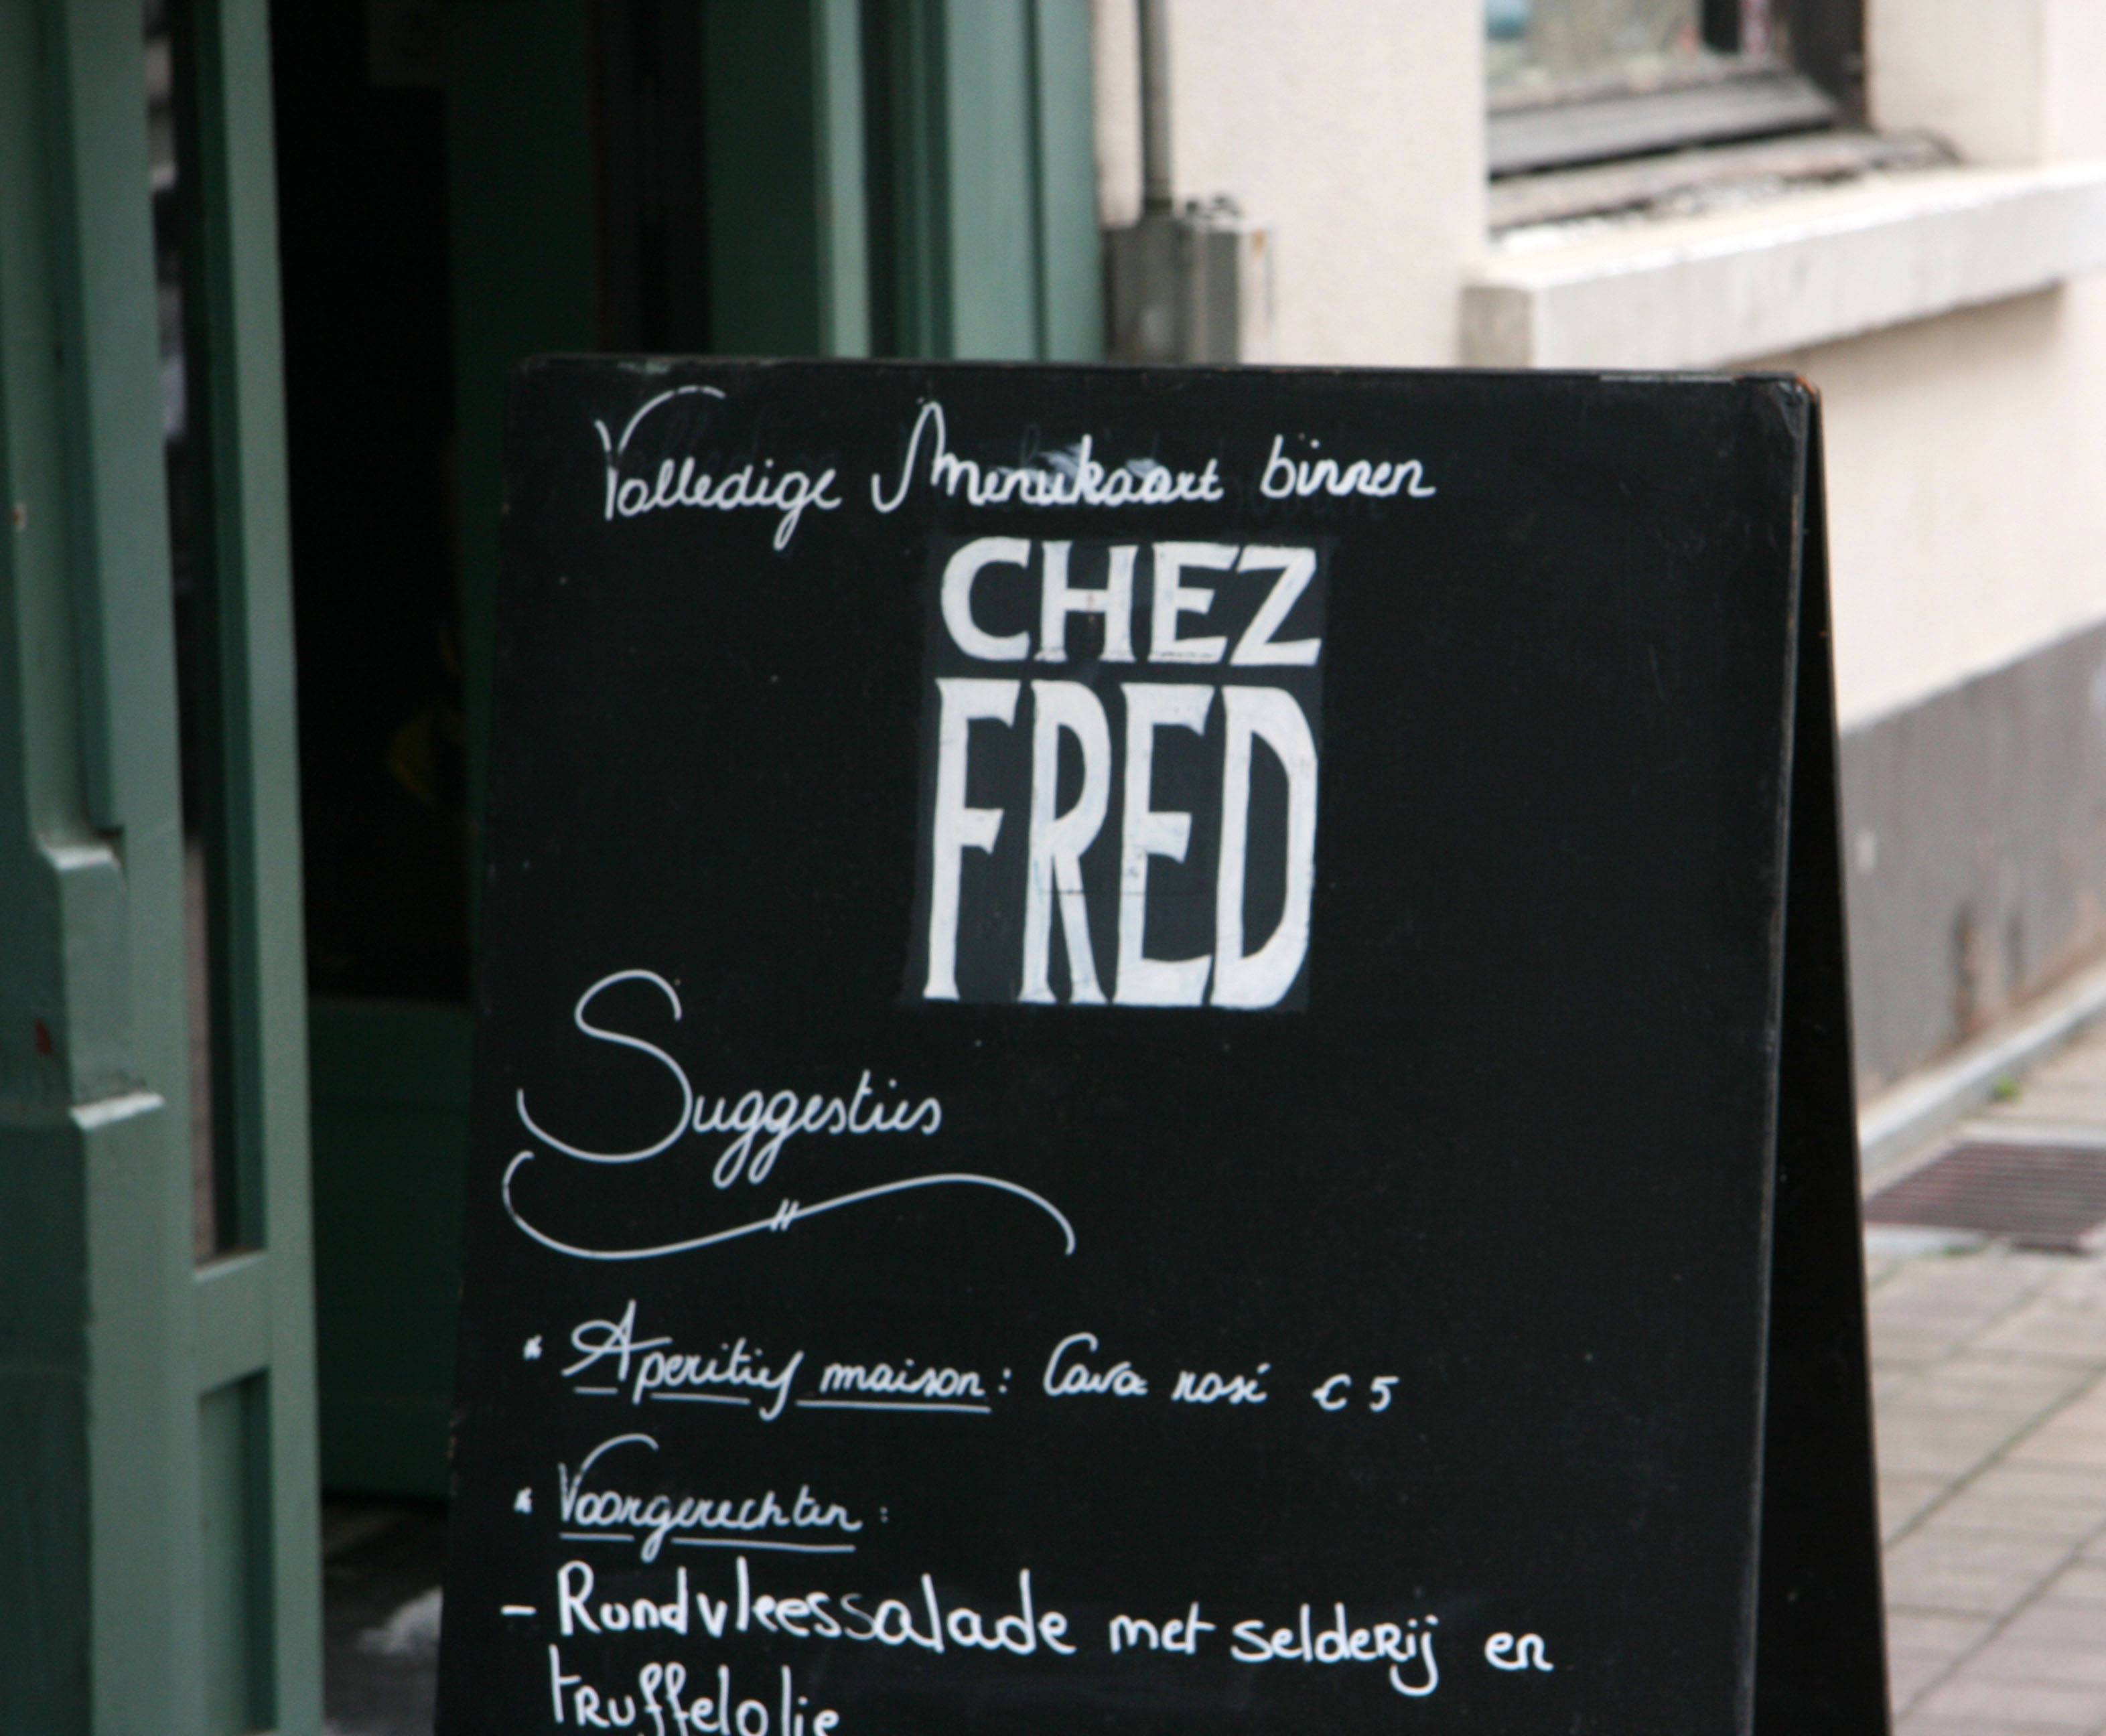 Volledige Menukaart binnen
CHEZ
FRED
Suggesties
* Aperitief maison: Cava rosé € 5
* Voorgerechten:
- Rundvleessalade met selderij en
truffelolie